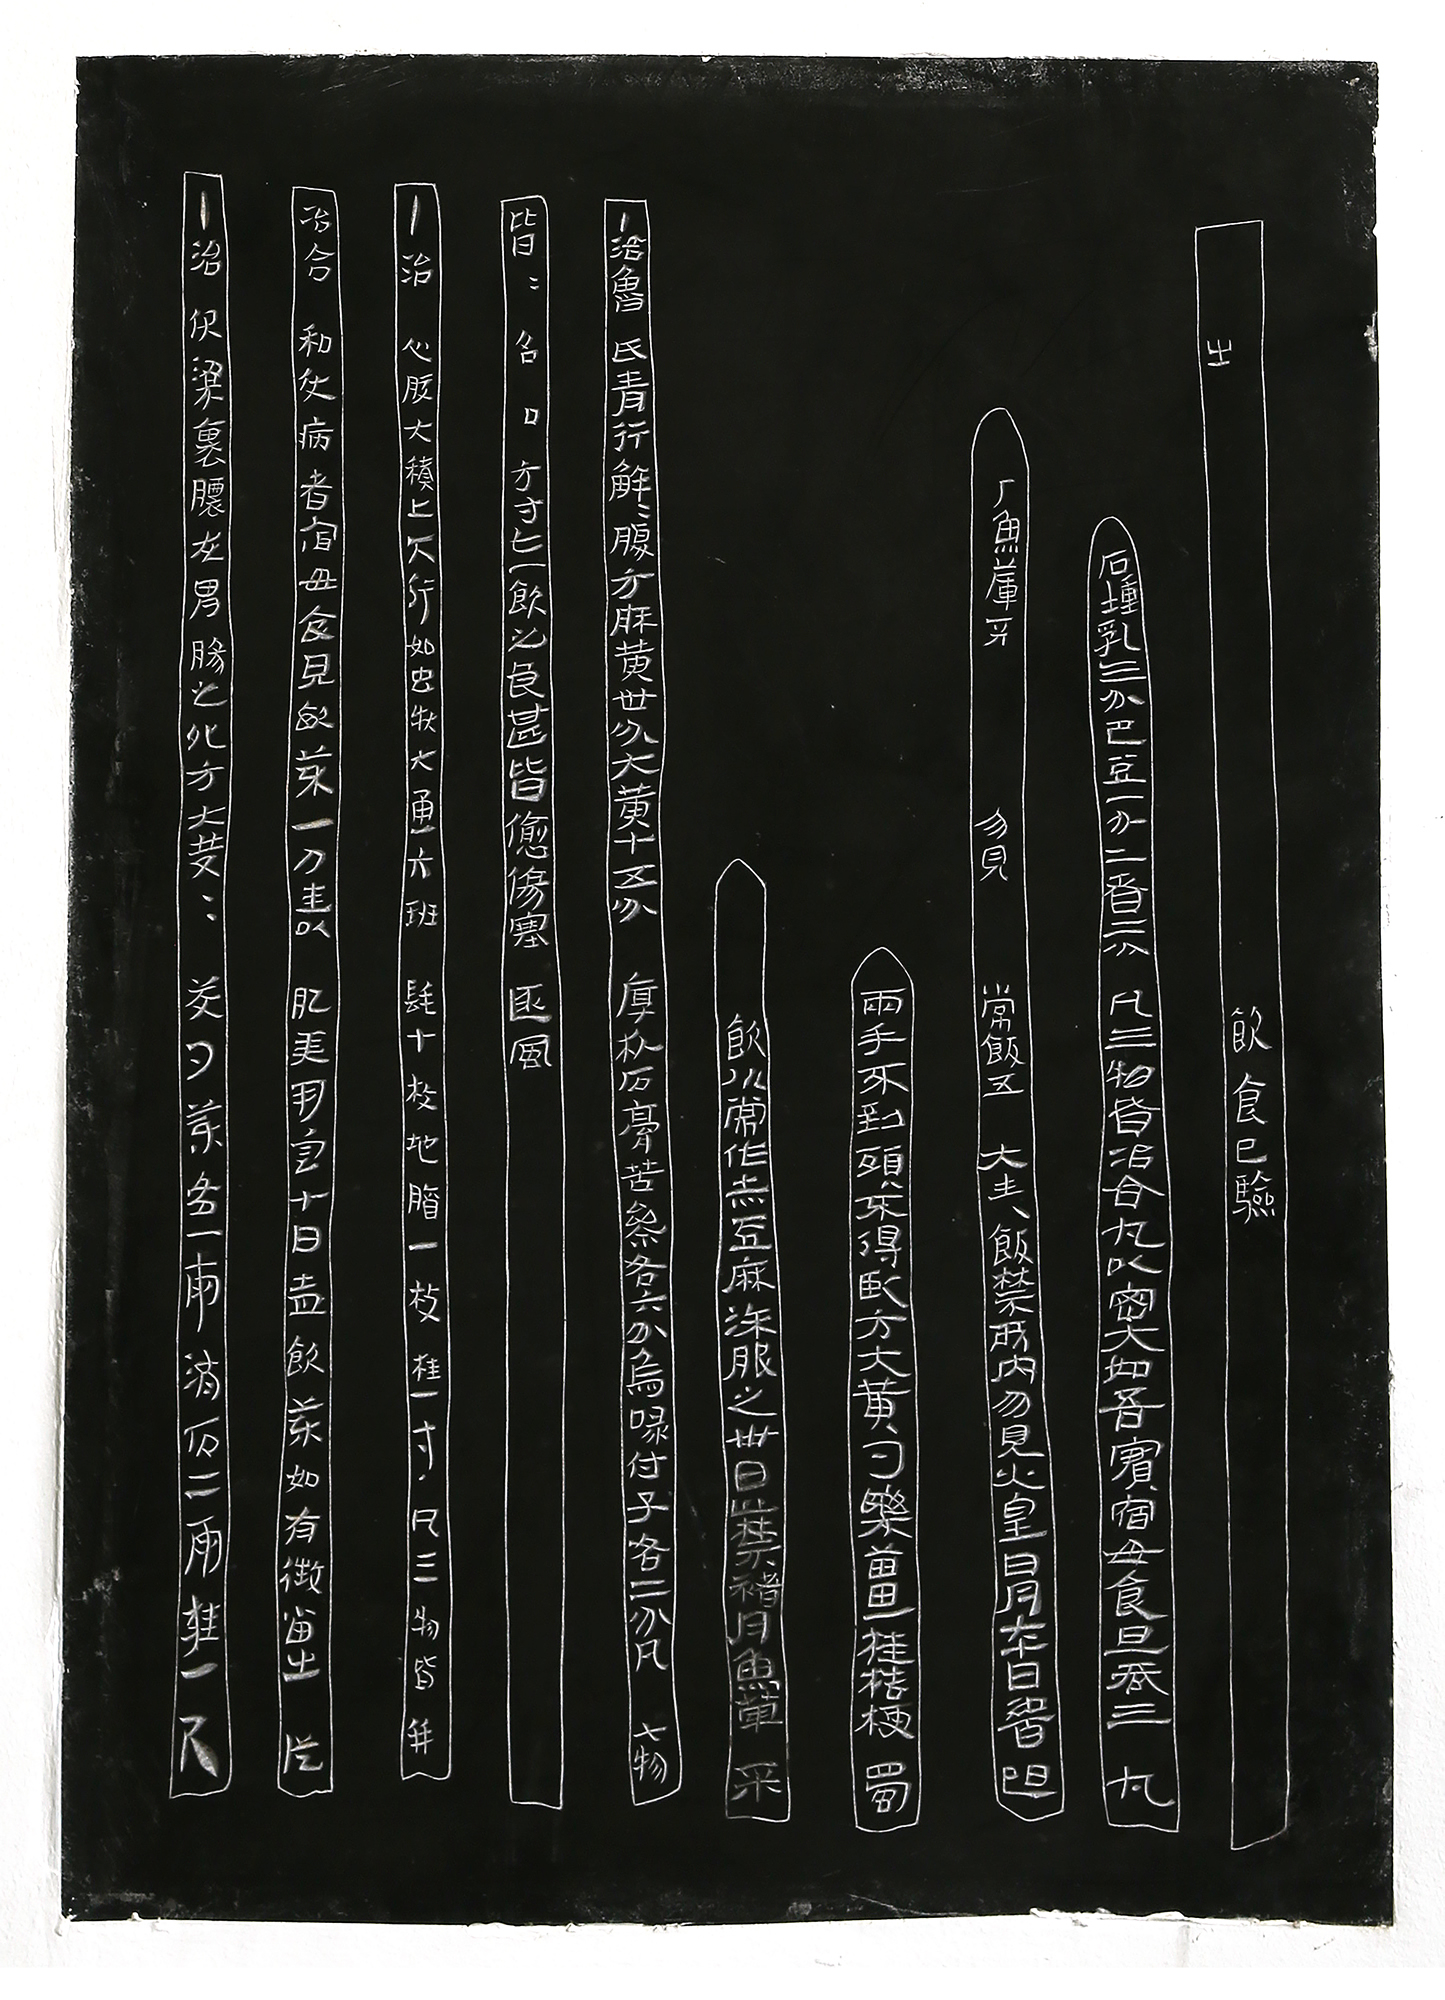 出 飲食巳驗
石鍾乳三分巴豆一分二者二分凡三物皆冶合丸以密大如吾實宿毋食旦吞三丸
魚葷 勿見 常飯五 大夫飯禁房內勿見火皇日月
兩手不到頭不得臥方大黃勺樂薑桂桔梗蜀
飲水常作赤豆麻洙服之卅日止禁豬肉魚葷采
治魯氏青行解=腹方麻黃卅分大黃十五分厚朴石膏苦參各六分烏喙付子各二分凡七物
皆=方寸匕一飲之良甚皆愈傷寒逐風
治心腹大積上下行如虫狀大恿方班髦十枚地膽一枚桂一寸凡三物皆并
冶合和使病者宿毋食旦飲藥一刀圭以肥美閉塞十日壹飲藥如有徵當出從
治伏梁裹膿在胃腸之外方大黃=芩勺藥各一兩消石二兩桂一尺